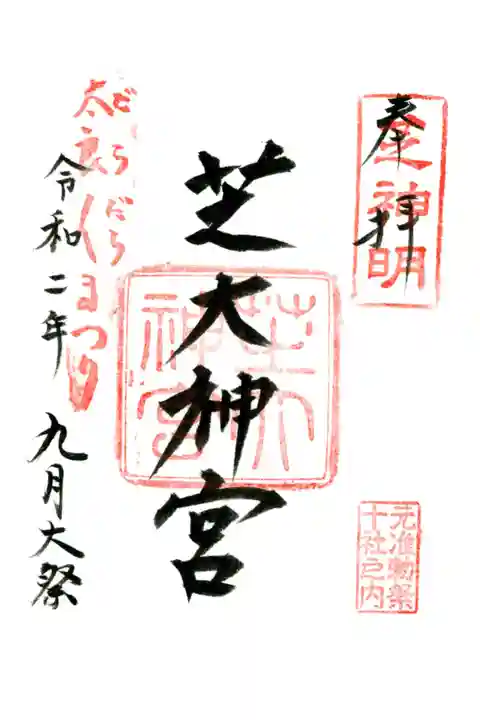 奉拝
芝神明
元准勅祭
十社之内
芝大神宮
芝大
神宮
だらだら
太良くまつり
令和二年 九月大祭